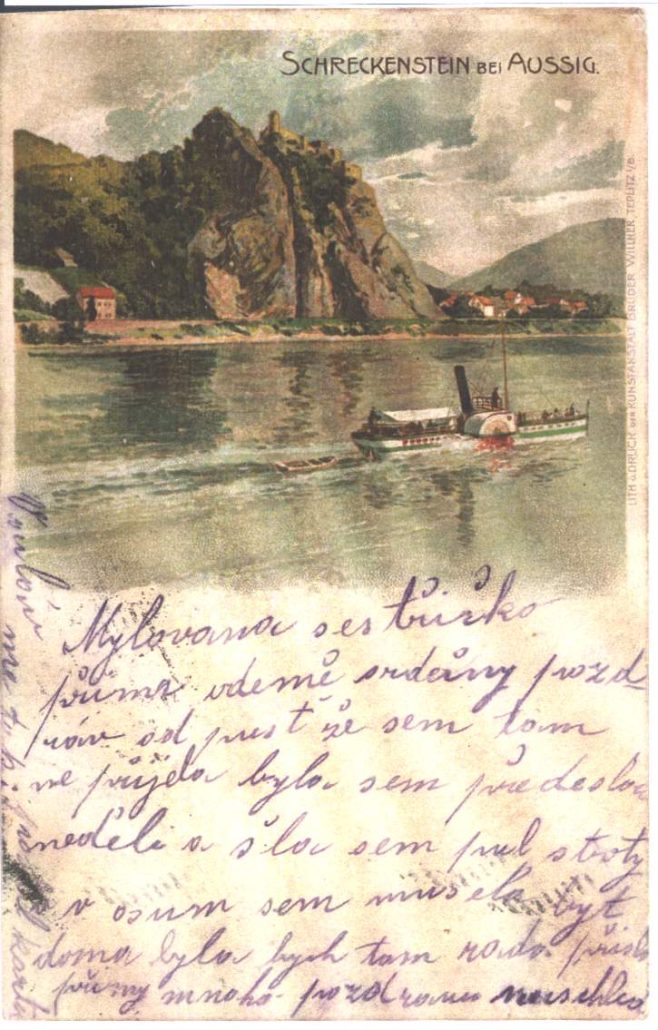 SCHRECKENSTEIN BEI AUSSIG.
LITH. u. DRUCK DER KUNSTANSTALT BRÜDER WILLNER TEPLITZ i/B.
Mylovana sestřičko
přimz odemě srdečny pozd
rav od pust že sem tam
ne přijela byla sem předeslou
neděli a šla sem pul
v osum sem musela byt
doma byla bych tam rada přišla
přimy mnoho pozdravu